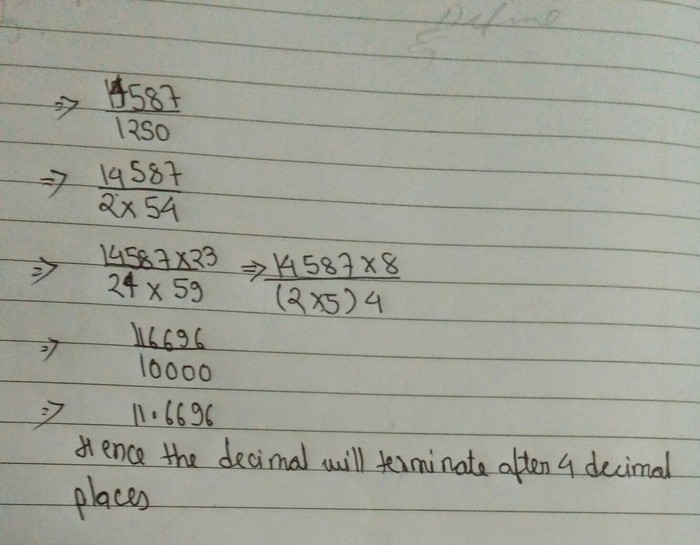 Define
⇒ 14587/1250
⇒ 14587/2×54
⇒ 14587×23/24×59 ⇒ 14587×8/(2×5)4
⇒ 116696/10000
⇒ 11.6696
Hence the decimal will terminate after 4 decimal
places